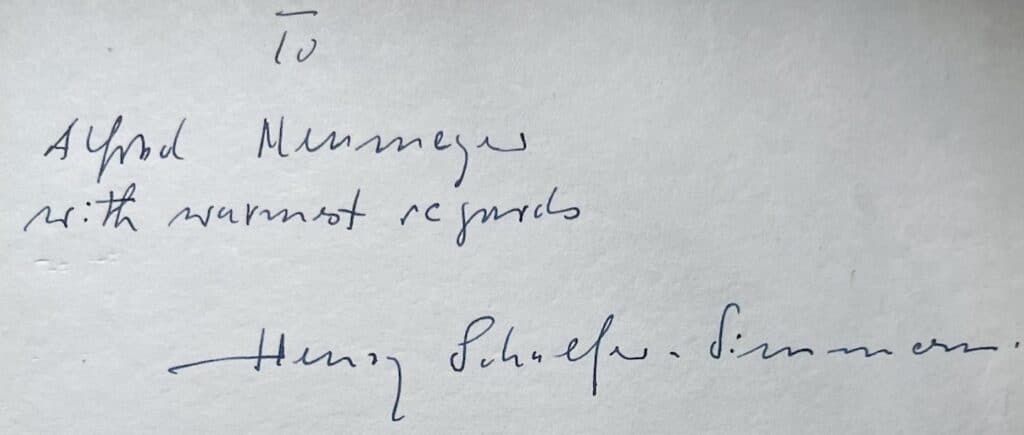 To
Alfred Neumeyer
with warmest regards
Henry Schaefer-Simmern.